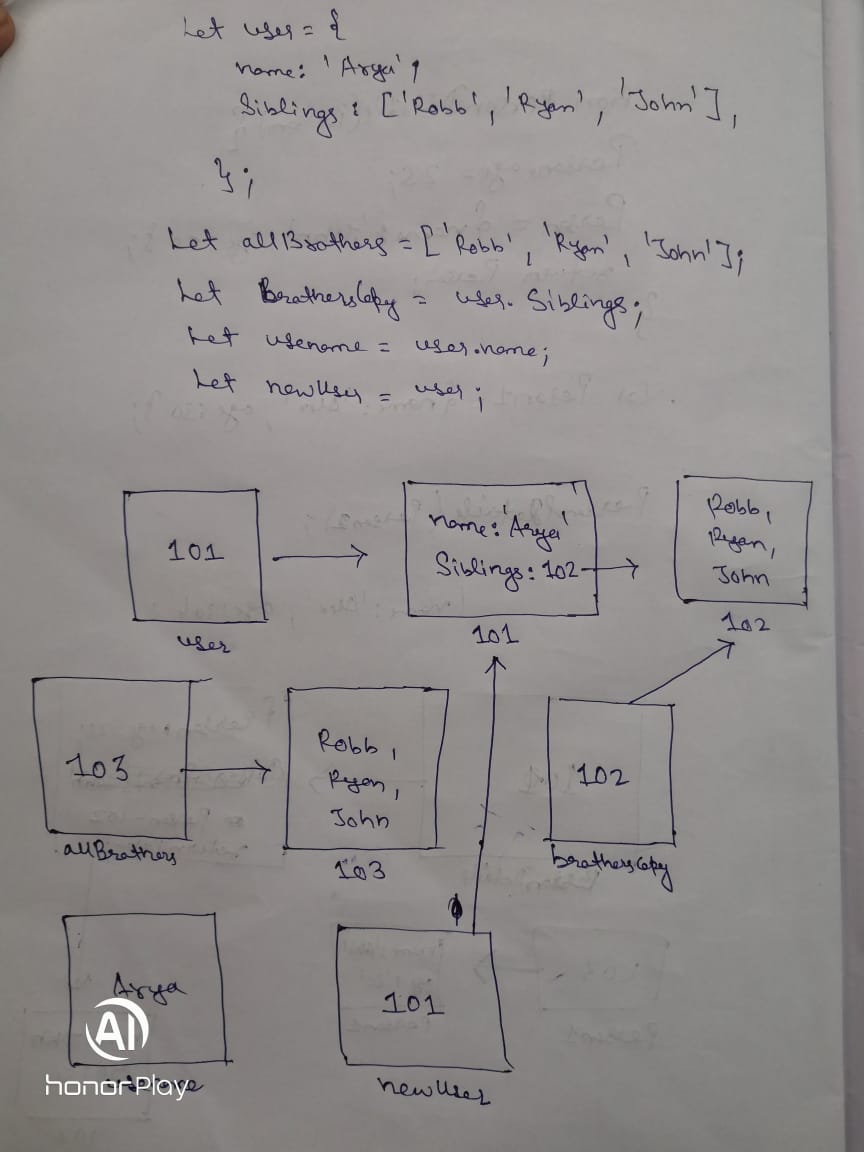 Let user = {
name: 'Arya',
Siblings: ['Robb', 'Ryan', 'John'],
};
Let allBrothers = ['Robb', 'Ryan', 'John'];
Let BrothersCopy = user. Siblings;
Let usename = user.name;
Let newUser = user;
101
user
name: 'Arya'
Siblings: 102
101
Robb,
Ryan,
John
102
103
allBrothers
Robb,
Ryan,
John
103
102
brothersCopy
Arya
AI
honorPlay
101
newUser